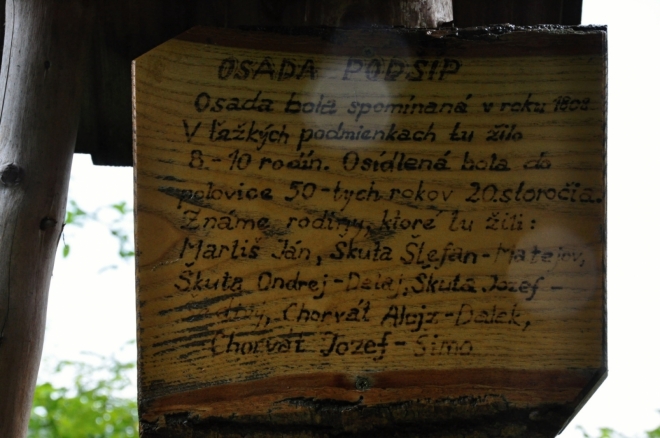 OSADA PODŠÍP
Osada bola spomínaná v roku 1808
V ťažkých podmienkach tu žilo
8.-10 rodín. Osídlená bola do
polovice 50-tych rokov 20.storočia.
Známe rodiny, ktoré tu žili:
Martiš Ján, Skuta Štefan-Matejov,
Skuta Ondrej-Dalaj, Skuta Jozef-
Chorvát Alojz-Dalek,
Chorvát Jozef-Simo